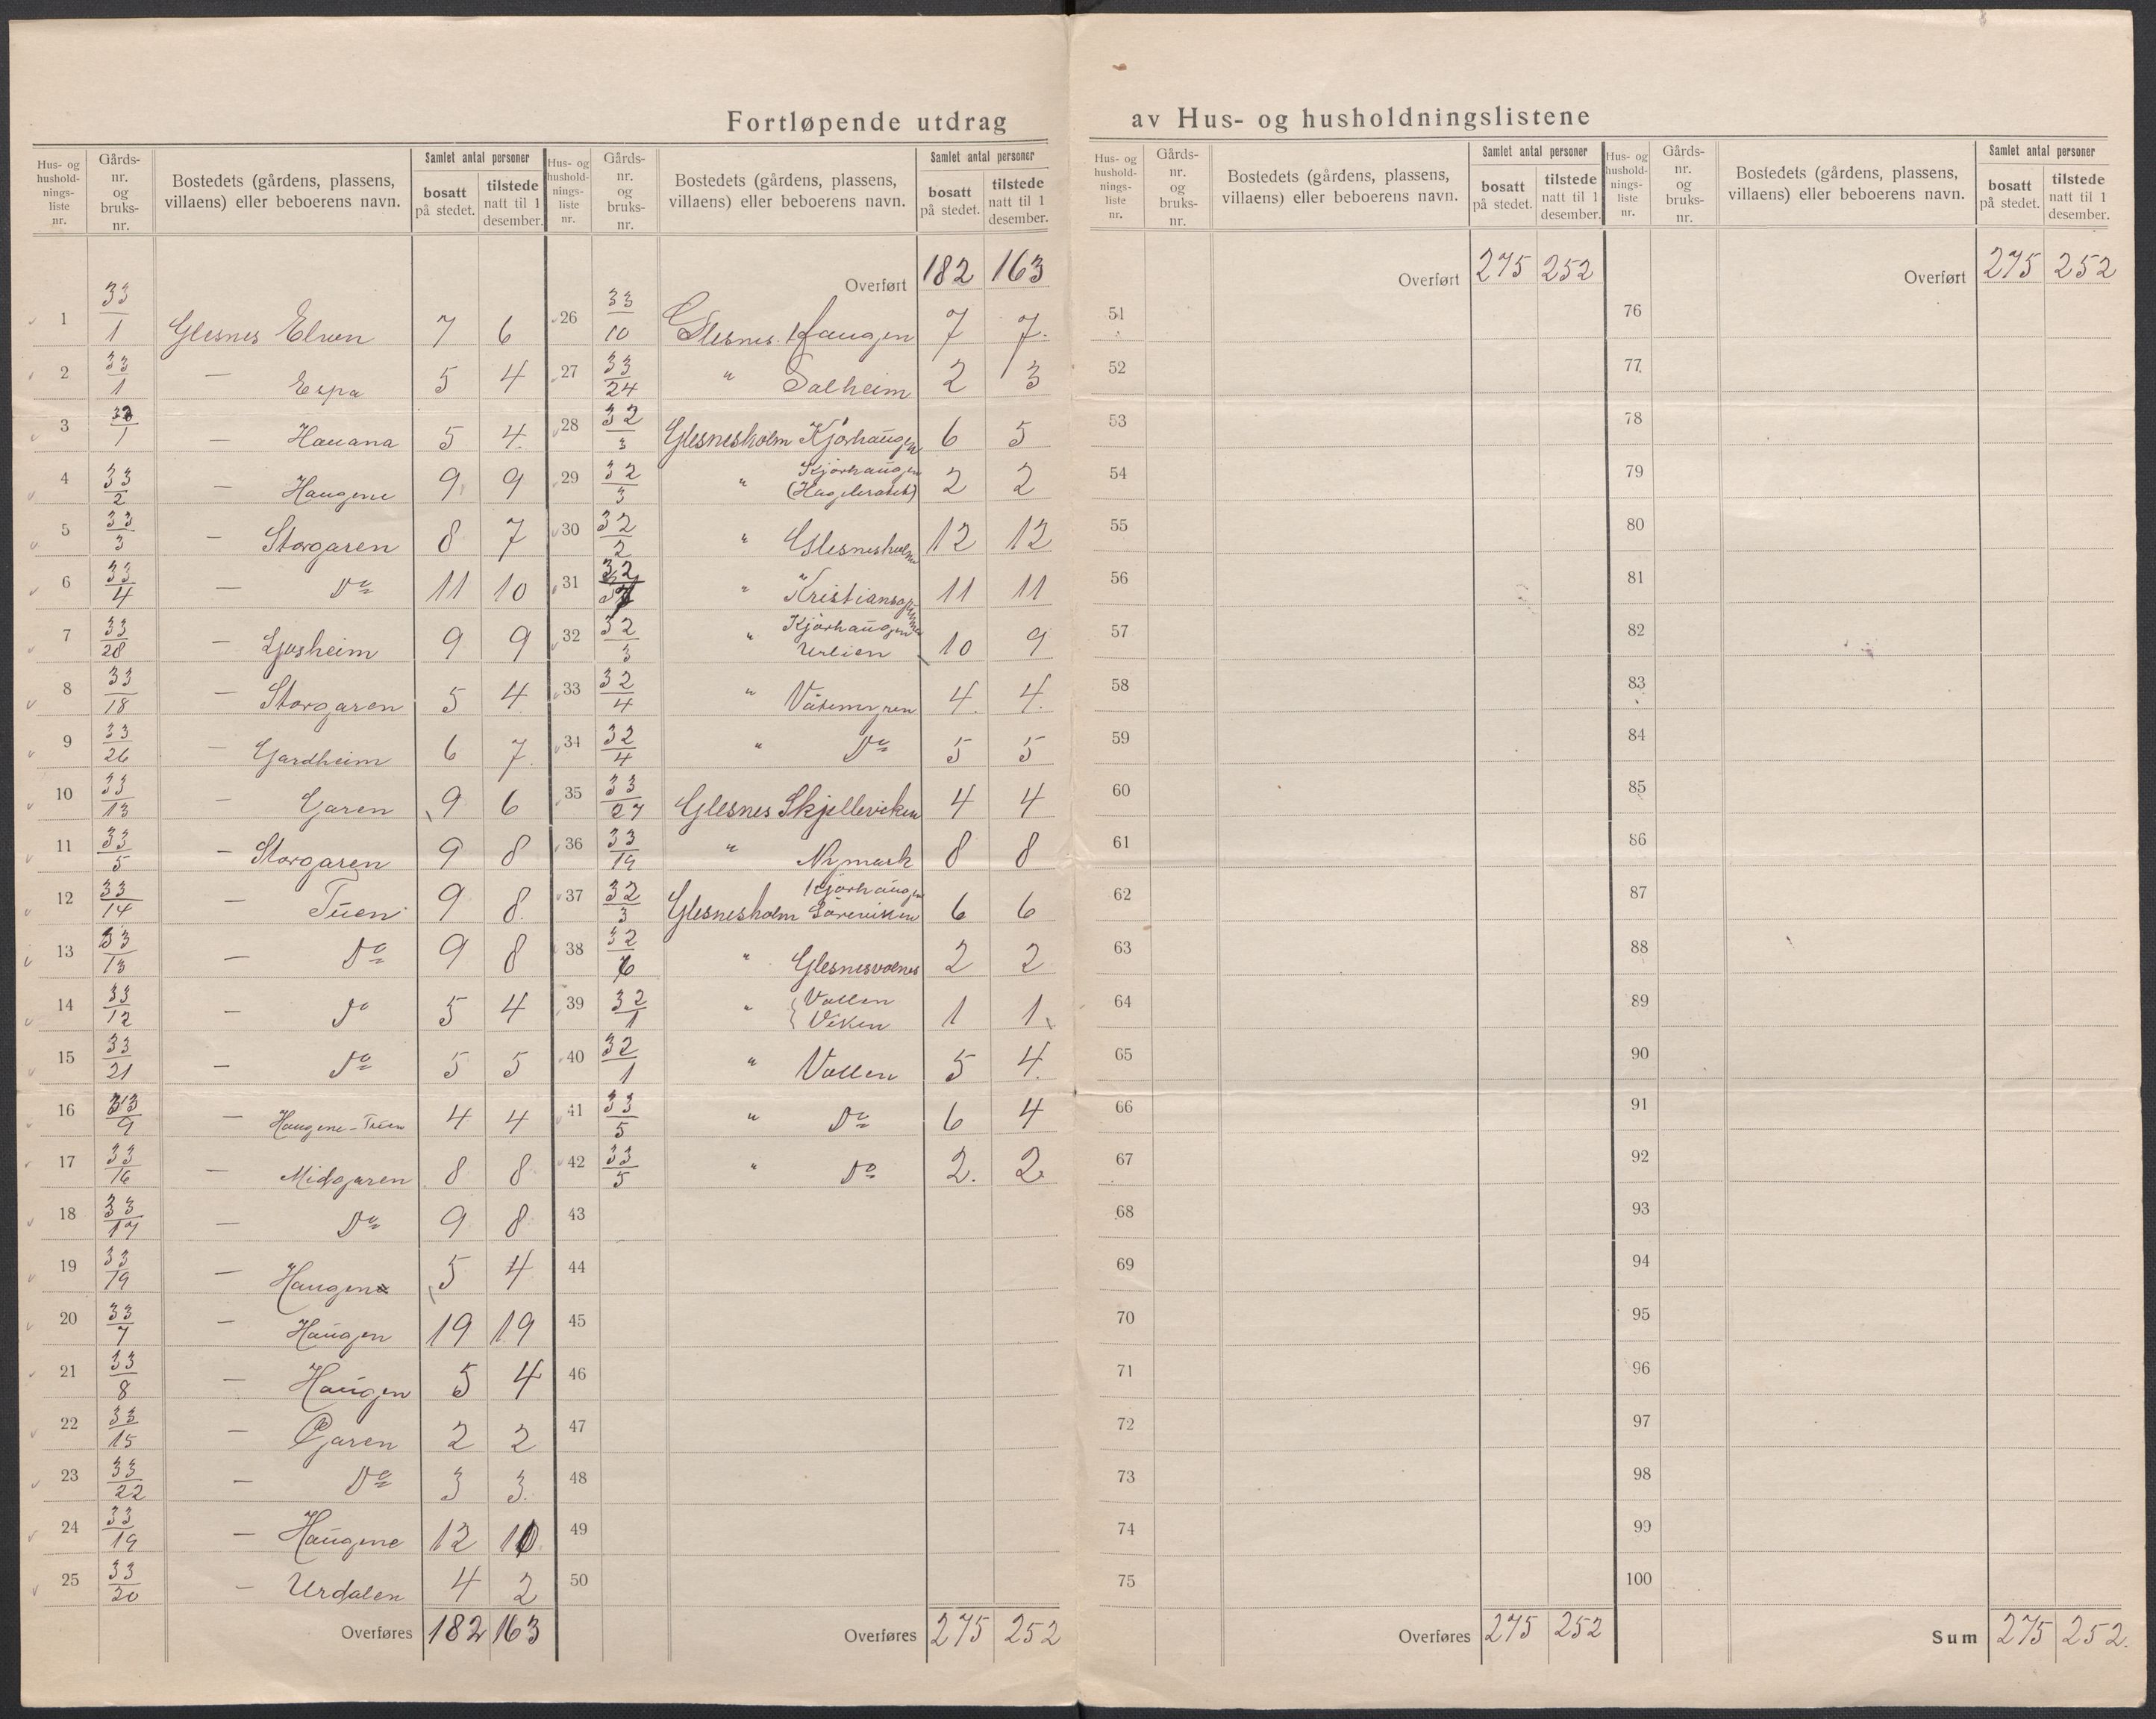 Fortløpende utdrag av Hus- og husholdningslistene
Hus- og husholdnings-liste nr. | Gårds-nr. og bruks-nr. | Bostedets (gårdens, plassens, villaens) eller beboerens navn. | Samlet antal personer | bosatt på stedet. | tilstede natt til 1 desember.
1 33/1 Glesnes Elven 7 6
2 33/1 — Espa 5 4
3 33/1 — Hauana 5 4
4 33/2 — Haugene 9 9
5 33/3 — Storgaren 8 7
6 33/4 — Do 11 10
7 33/28 — Ljosheim 9 9
8 33/18 — Storgaren 5 4
9 33/26 — Gardheim 6 7
10 33/13 — Garen 9 6
11 33/5 — Storgaren 9 8
12 33/14 — Tuen 9 8
13 33/13 — Do 9 8
14 33/12 — Do 5 4
15 33/21 — Do 5 5
16 33/9 — Haugene-Tuen 4 4
17 33/16 — Midgaren 8 8
18 33/17 — Do 9 8
19 33/19 — Haugen 5 4
20 33/7 — Haugen 19 19
21 33/8 — Haugen 5 4
22 33/15 — Garen 2 2
23 33/22 — Do 3 3
24 33/19 — Haugene 12 10
25 33/20 — Urdalen 4 2
Overføres 182 163
Hus- og husholdnings-liste nr. | Gårds-nr. og bruks-nr. | Bostedets (gårdens, plassens, villaens) eller beboerens navn. | Samlet antal personer | bosatt på stedet. | tilstede natt til 1 desember.
Overført 182 163
26 33/10 Glesnes Haugen 7 7
27 33/24 " Solheim 2 3
28 32/3 Glesnesholm Kjørhaugen 6 5
29 32/3 " Kjørhaugen 2 2
30 32/2 " Glesnesholm 12 12
31 32 " 11 11
32 32/3 " Kjørhaugen Urlien 10 9
33 32/4 " Våtemyren 4 4
34 32/4 " Do 5 5
35 33/27 Glesnes Skjelleviken 4 4
36 33/19 " Nymark 8 8
37 32/3 Glesnesholm Kjørhaugen Søreviken 6 6
38 32/6 " Glesnesvolnes 2 2
39 32/1 " Vollen Viken 1 1
40 32/1 " Vollen 5 4
41 33/5 " Do 6 4
42 33/5 " Do 2 2
43
44
45
46
47
48
49
50
Overføres 275 252
Hus- og husholdnings-liste nr. | Gårds-nr. og bruks-nr. | Bostedets (gårdens, plassens, villaens) eller beboerens navn. | Samlet antal personer | bosatt på stedet. | tilstede natt til 1 desember.
Overført 275 252
51
52
53
54
55
56
57
58
59
60
61
62
63
64
65
66
67
68
69
70
71
72
73
74
75
Overføres 275 252
Hus- og husholdnings-liste nr. | Gårds-nr. og bruks-nr. | Bostedets (gårdens, plassens, villaens) eller beboerens navn. | Samlet antal personer | bosatt på stedet. | tilstede natt til 1 desember.
Overført 275 252
76
77
78
79
80
81
82
83
84
85
86
87
88
89
90
91
92
93
94
95
96
97
98
99
100
Sum 275 252